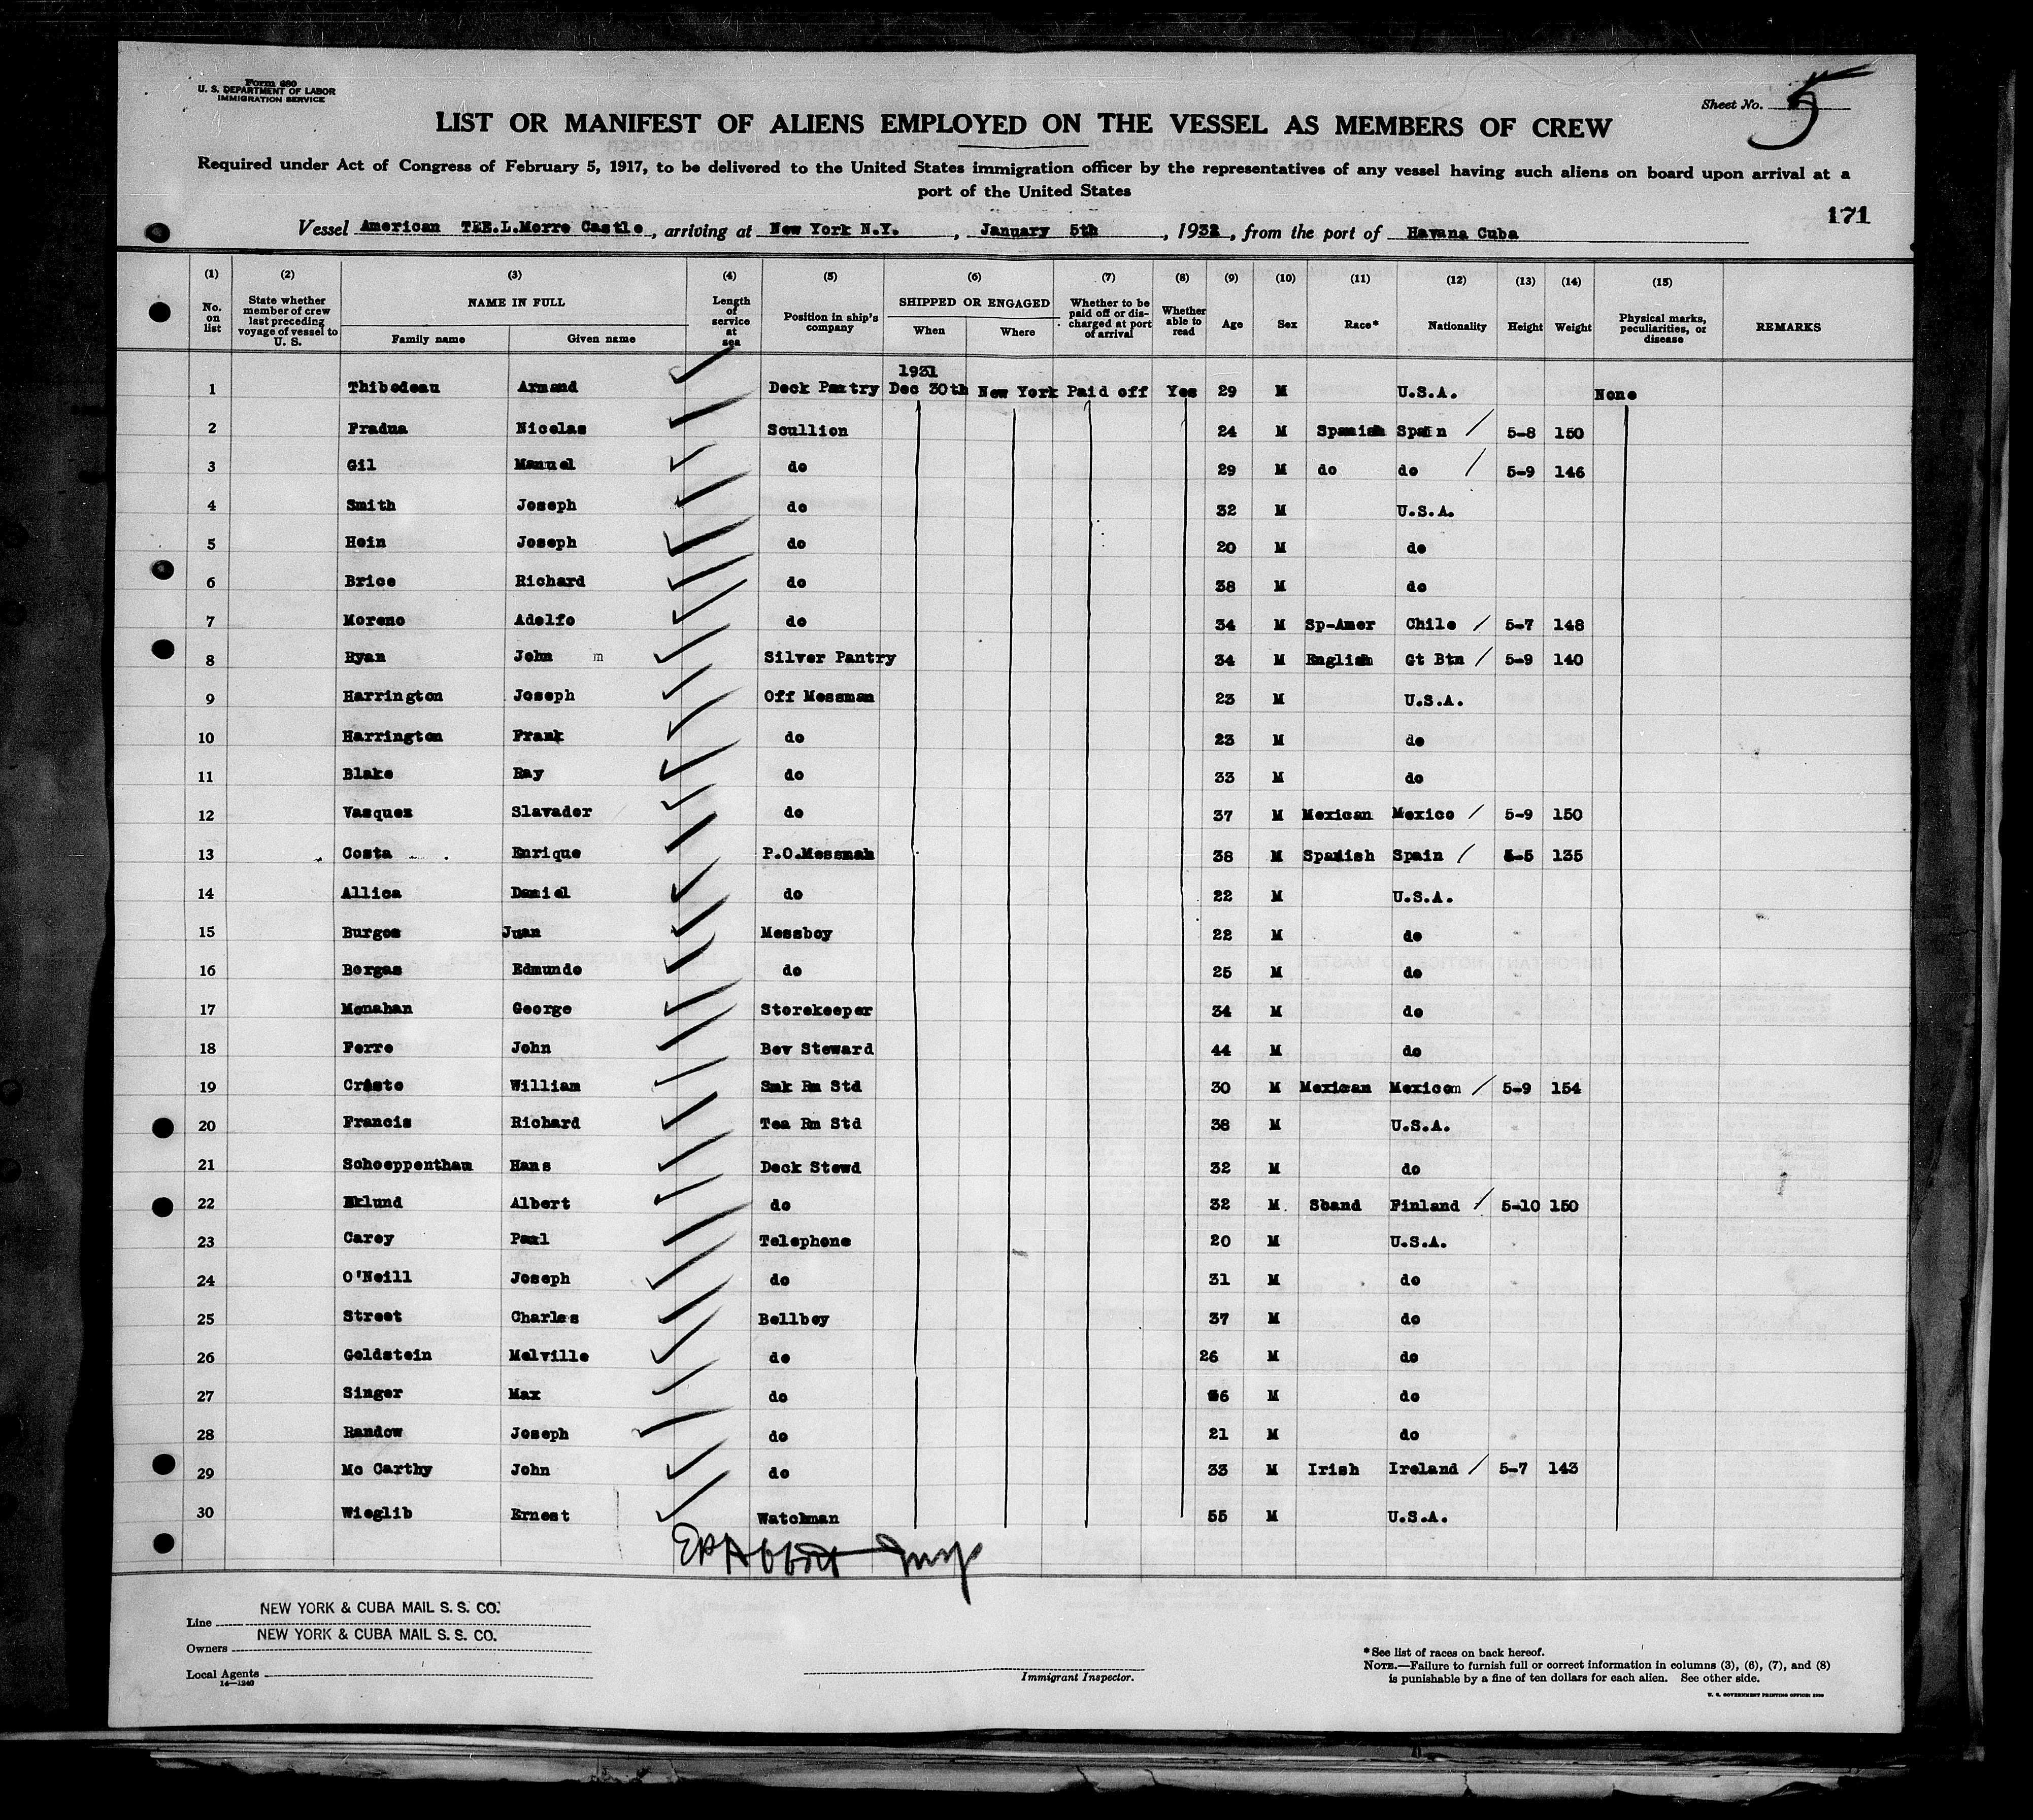 Form 680
U. S. DEPARTMENT OF LABOR
IMMIGRATION SERVICE
Sheet No. 5
LIST OR MANIFEST OF ALIENS EMPLOYED ON THE VESSEL AS MEMBERS OF CREW
Required under Act of Congress of February 5, 1917, to be delivered to the United States immigration officer by the representatives of any vessel having such aliens on board upon arrival at a
port of the United States
171
Vessel American T.E.L.Morro Castle, arriving at New York N.Y., January 5th, 1932, from the port of Havana Cuba
(1) (2) (3) (4) (5) (6) (7) (8) (9) (10) (11) (12) (13) (14) (15)
No. on list State whether member of crew last preceding voyage of vessel to U. S. NAME IN FULL Family name Given name Length of service at sea Position in ship's company SHIPPED OR ENGAGED When Where Whether to be paid off or discharged at port of arrival Whether able to read Age Sex Race* Nationality Height Weight Physical marks, peculiarities, or disease REMARKS
1931
1 Thibodeau Armand Deck Pantry Dec 30th New York Paid off Yes 29 M U.S.A. None
2 Fradua Nicolas Scullion 24 M Spanish Spain / 5-8 150
3 Gil Manuel do 29 M do do / 5-9 146
4 Smith Joseph do 32 M U.S.A.
5 Hein Joseph do 20 M do
6 Brice Richard do 38 M do
7 Moreno Adolfo do 34 M Sp-Amer Chile / 5-7 148
8 Ryan John m Silver Pantry 34 M English Gt Btn / 5-9 140
9 Harrington Joseph Off Messman 23 M U.S.A.
10 Harrington Frank do 23 M do
11 Blake Ray do 33 M do
12 Vasquez Slavador do 37 M Mexican Mexico / 5-9 150
13 Costa Enrique P.O.Messman 38 M Spanish Spain / 5-5 135
14 Allica Daniel do 22 M U.S.A.
15 Burgos Juan Messboy 22 M do
16 Borgas Edmundo do 25 M do
17 Monahan George Storekeeper 34 M do
18 Ferro John Bev Steward 44 M do
19 Cristo William Smk Rm Std 30 M Mexican Mexicom / 5-9 154
20 Francis Richard Tea Rm Std 38 M U.S.A.
21 Schoeppenthau Hans Deck Stewd 32 M do
22 Eklund Albert do 32 M. Scand Finland / 5-10 150
23 Carey Paul Telephone 20 M U.S.A.
24 O'Neill Joseph do 31 M do
25 Street Charles Bellboy 37 M do
26 Goldstein Melville do 26 M do
27 Singer Max do 56 M do
28 Randow Joseph do 21 M do
29 Mc Carthy John do 33 M Irish Ireland / 5-7 143
30 Wieglib Ernest Watchman 55 M U.S.A.
EP Abbott
Line NEW YORK & CUBA MAIL S. S. CO.
Owners NEW YORK & CUBA MAIL S. S. CO.
Local Agents
14—1240
Immigrant Inspector.
*See list of races on back hereof.
NOTE.—Failure to furnish full or correct information in columns (3), (6), (7), and (8)
is punishable by a fine of ten dollars for each alien. See other side.
U. S. GOVERNMENT PRINTING OFFICE: 1930